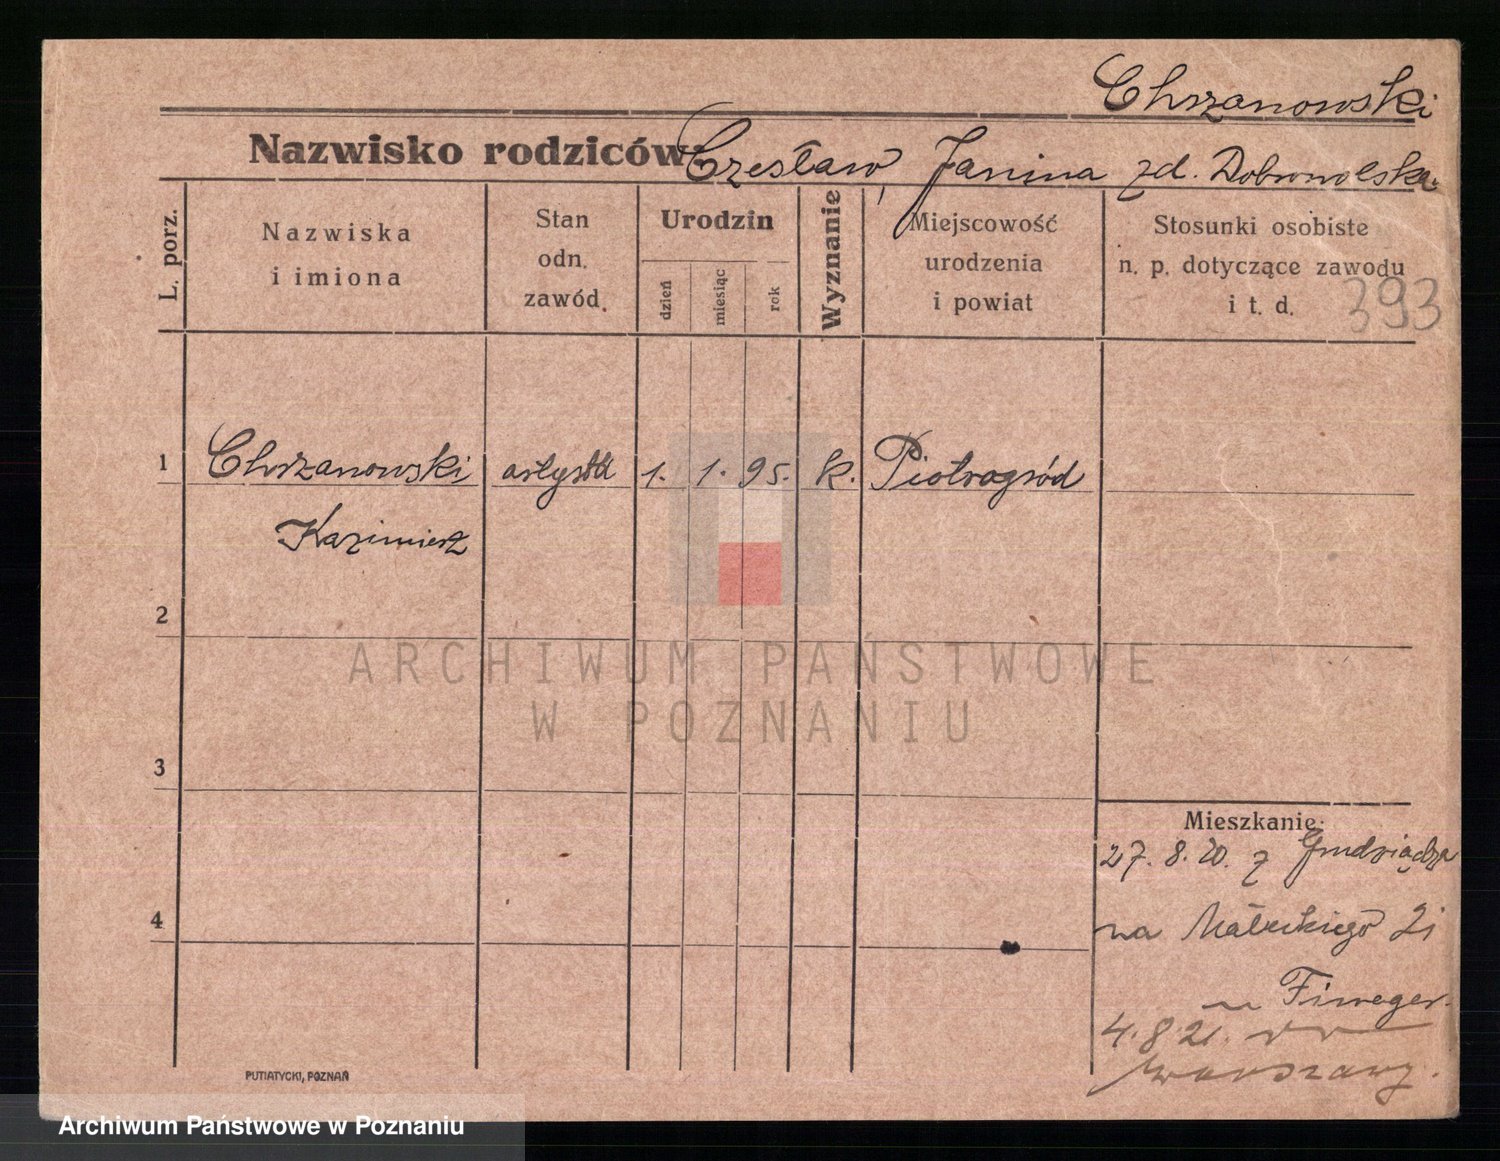 Chrzanowski
Nazwisko rodziców: Czesław, Janina zd. Dobrowolska.
L. porz.
Nazwiska
i imiona
Stan
odn.
zawód.
Urodzin
dzień
miesiąc
rok
Wyznanie
Miejscowość
urodzenia
i powiat
Stosunki osobiste
n. p. dotyczące zawodu
i t. d.
393
1 Chrzanowski artysta 1. 1. 95. k. Piotrogród
Kazimierz
2
ARCHIWUM PAŃSTWOWE
W POZNANIU
3
Mieszkanie:
27. 8. 20. z Grudziądza
4
na Małeckiego
u Fiweger.
4. 8 21. do
Warszawy.
PUTIATYCKI, POZNAŃ
Archiwum Państwowe w Poznaniu